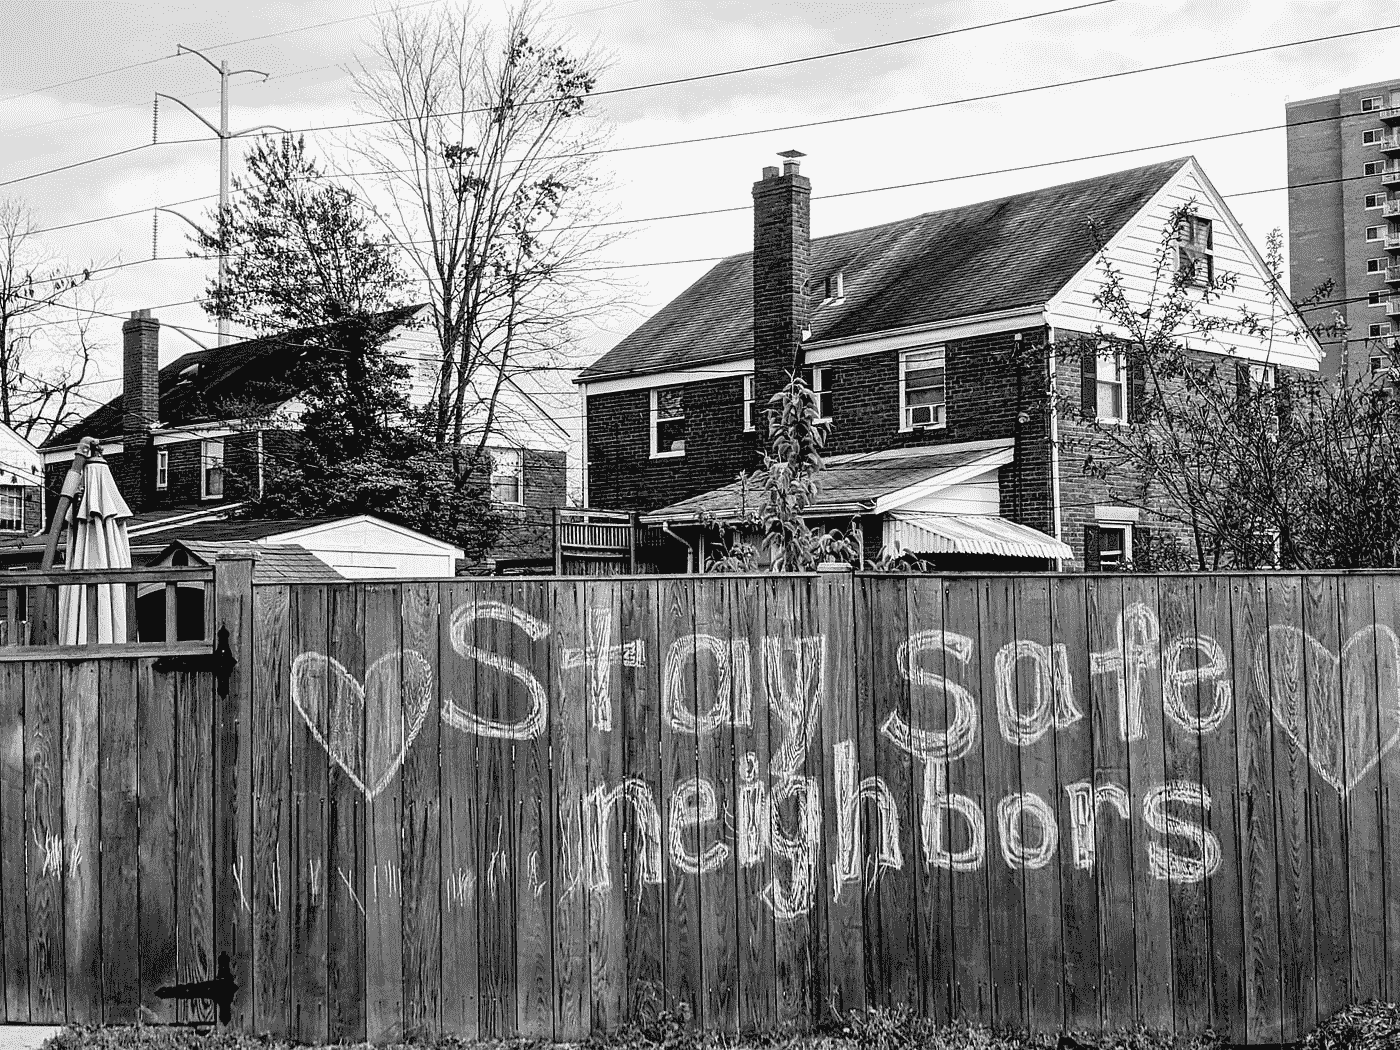 Stay safe
neighbors